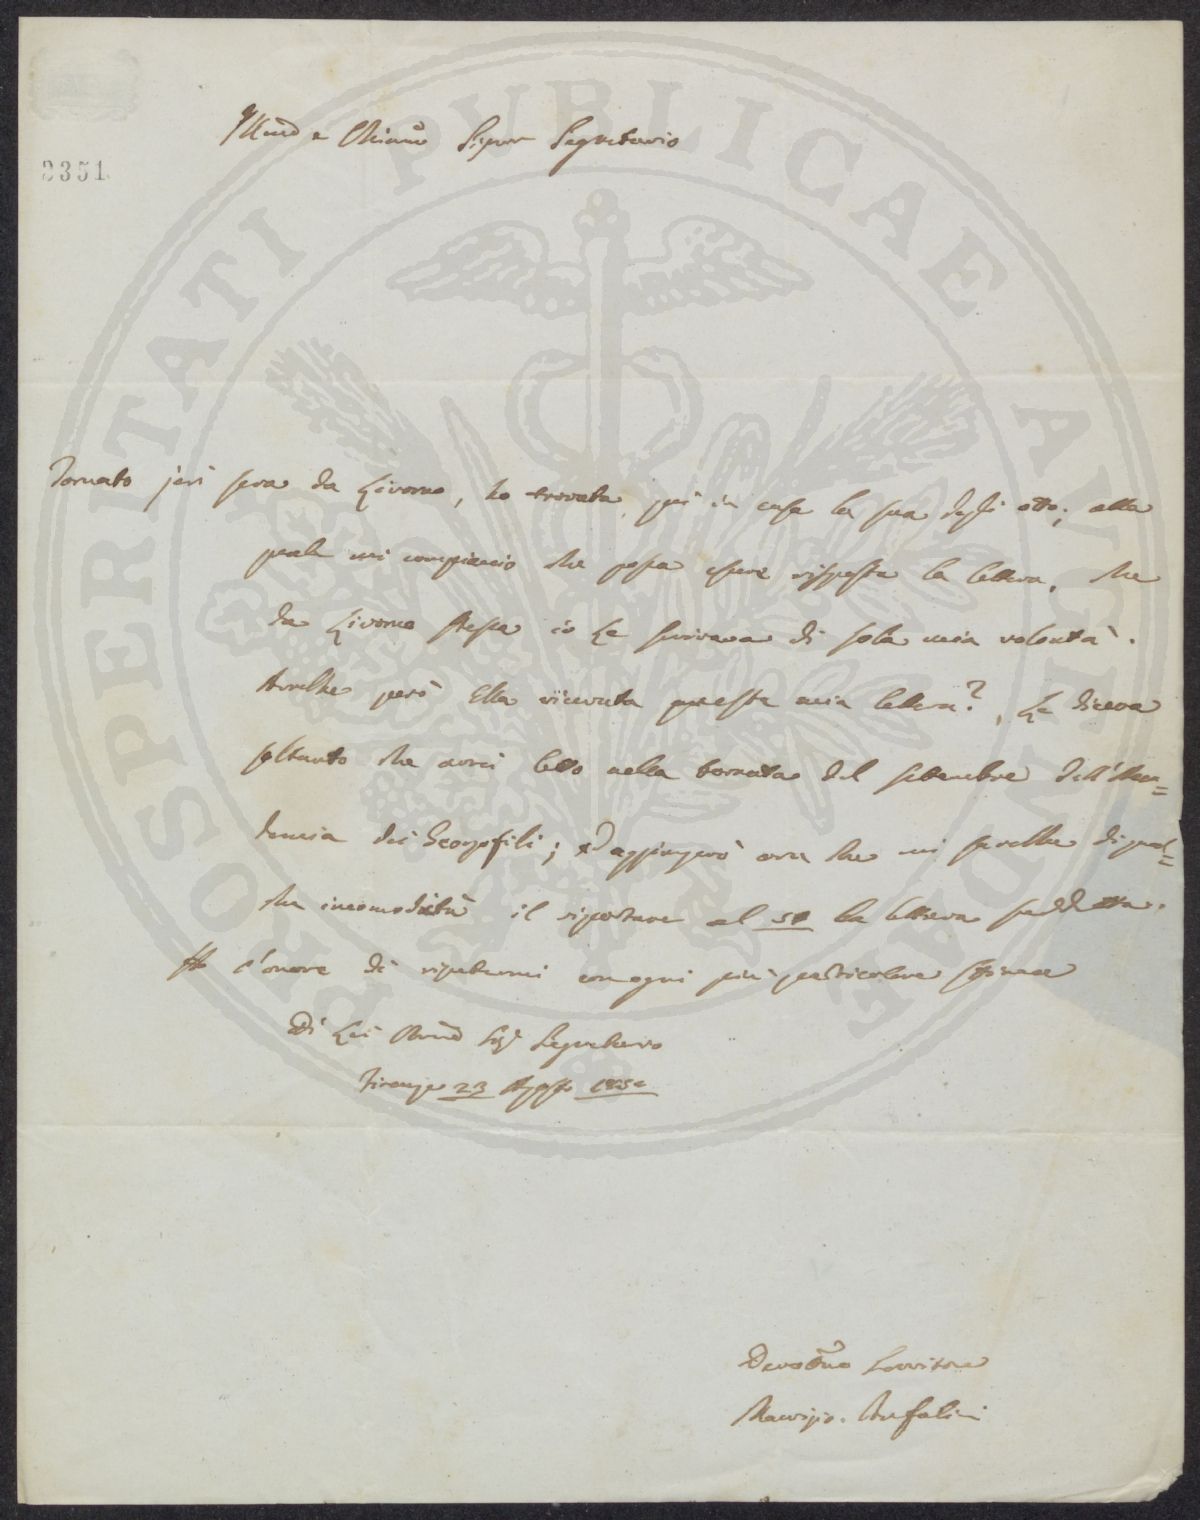 Illmo e Chiarmo Signor Segretario
2351
Tornato jeri sera da Livorno, ho trovata qui in casa la sua degli otto; alla
quale mi compiaccio che possa essere risposta la lettera, che
da Livorno stessa io Le scriveva di sola mia volontà.
Avrebbe però Ella ricevuta questa mia lettera? Le diceva
soltanto che avrei letto nella tornata del settembre dell'Acca=
demia dei Georgofili; ed aggiungerò ora che mi sarebbe di qual=
che incomodità il riportare al la lettura suddetta.
Ho l'onore di ripetermi con ogni più particolare stima
Di Lei Chiarmo Sigr Segretario
Firenze 23 Agosto
Devotmo Servitore
Maurizio Bufalini
PROSPERITATI PUBLICAE AUGENDAE